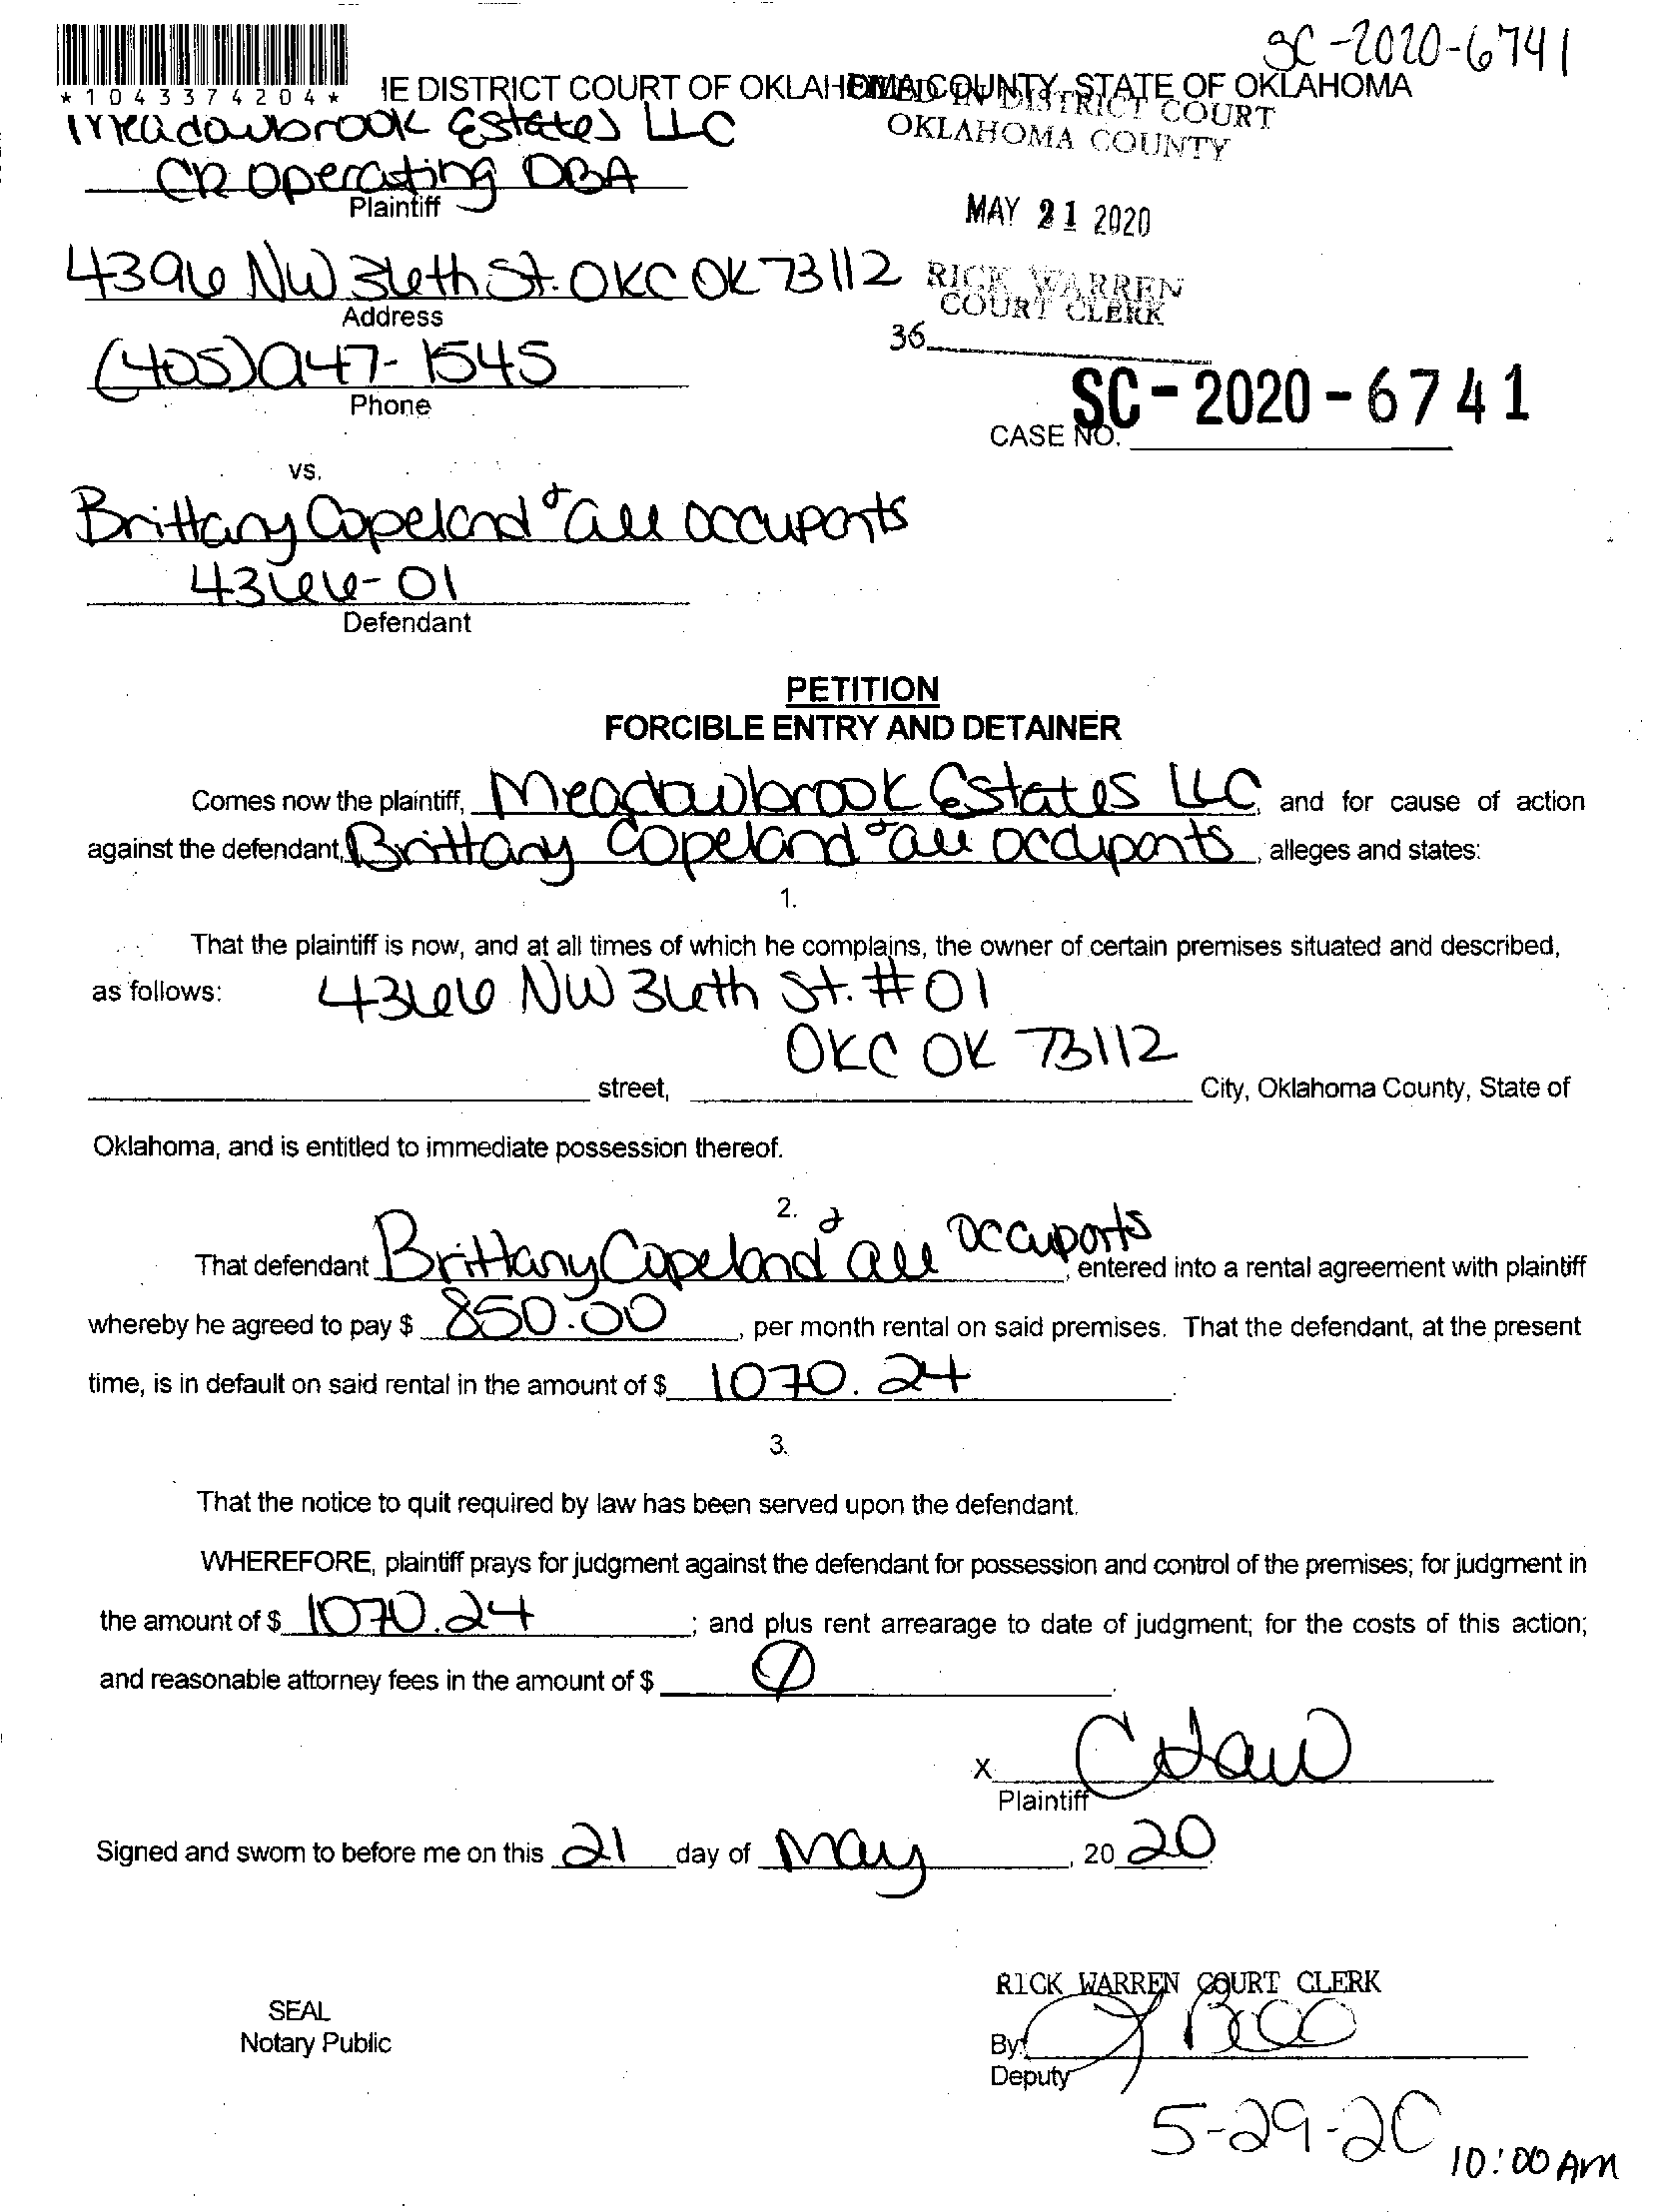 SC-2020-6741
*1043374204*
IE DISTRICT COURT OF OKLAHOMA COUNTY, STATE OF OKLAHOMA
FILED IN DISTRICT COURT
OKLAHOMA COUNTY
Meadowbrook Estates LLC
CR Operating DBA
Plaintiff
MAY 21 2020
4396 NW 36th St. OKC OK 73112
Address
RICK WARREN
COURT CLERK
36
(405)947-1545
Phone
SC-2020-6741
CASE NO.
vs.
Brittany Copeland & all occupants
4366-01
Defendant
PETITION
FORCIBLE ENTRY AND DETAINER
Comes now the plaintiff, Meadowbrook Estates LLC, and for cause of action
against the defendant, Brittany Copeland & all occupants, alleges and states:
1.
That the plaintiff is now, and at all times of which he complains, the owner of certain premises situated and described,
as follows: 4366 NW 36th St. #01
OKC OK 73112
street, City, Oklahoma County, State of
Oklahoma, and is entitled to immediate possession thereof.
2.
That defendant Brittany Copeland & all occupants, entered into a rental agreement with plaintiff
whereby he agreed to pay $ 850.00, per month rental on said premises. That the defendant, at the present
time, is in default on said rental in the amount of $ 1070.24.
3.
That the notice to quit required by law has been served upon the defendant.
WHEREFORE, plaintiff prays for judgment against the defendant for possession and control of the premises; for judgment in
the amount of $ 1070.24; and plus rent arrearage to date of judgment; for the costs of this action;
and reasonable attorney fees in the amount of $ 0.
X
Plaintiff
Signed and sworn to before me on this 21 day of May, 20 20.
RICK WARREN COURT CLERK
SEAL
Notary Public
By:
Deputy
5-29-20
10:00 AM